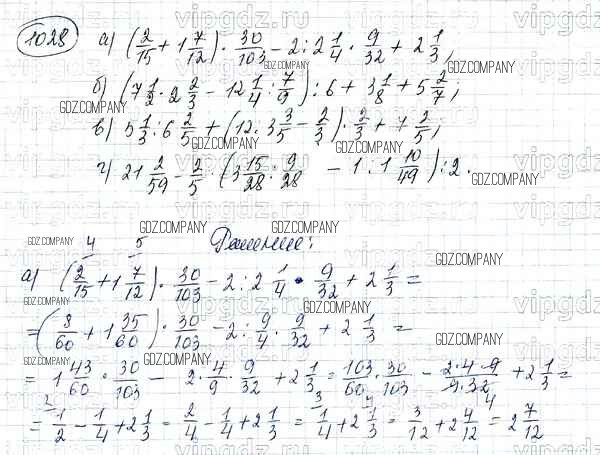 1028 а) (2/15 + 1 7/12) · 30/103 - 2 : 2 1/4 · 9/32 + 2 1/3;
б) (7 1/2 · 2 2/3 - 12 1/4 : 7/9) : 6 + 3 1/8 + 5 2/7;
в) 5 1/3 : 6 2/5 + (12 : 3 3/5 - 2/3) · 2/3 + 7 2/5;
г) 21 2/59 - 2/5 · (3 15/28 · 9/28 - 1 · 1 10/49) : 2.
Решение:
4 5
а) (2/15 + 1 7/12) · 30/103 - 2 : 2 1/4 · 9/32 + 2 1/3 =
= (8/60 + 1 35/60) · 30/103 - 2 : 9/4 · 9/32 + 2 1/3 =
= 1 43/60 · 30/103 - 2 · 4/9 · 9/32 + 2 1/3 = 103 · 30/60 · 103 - 2 · 4 · 9/9 · 32 + 2 1/3 =
= 1/2 - 1/4 + 2 1/3 = 2/4 - 1/4 + 2 1/3 = 1/4 + 2 1/3 = 3/12 + 2 4/12 = 2 7/12